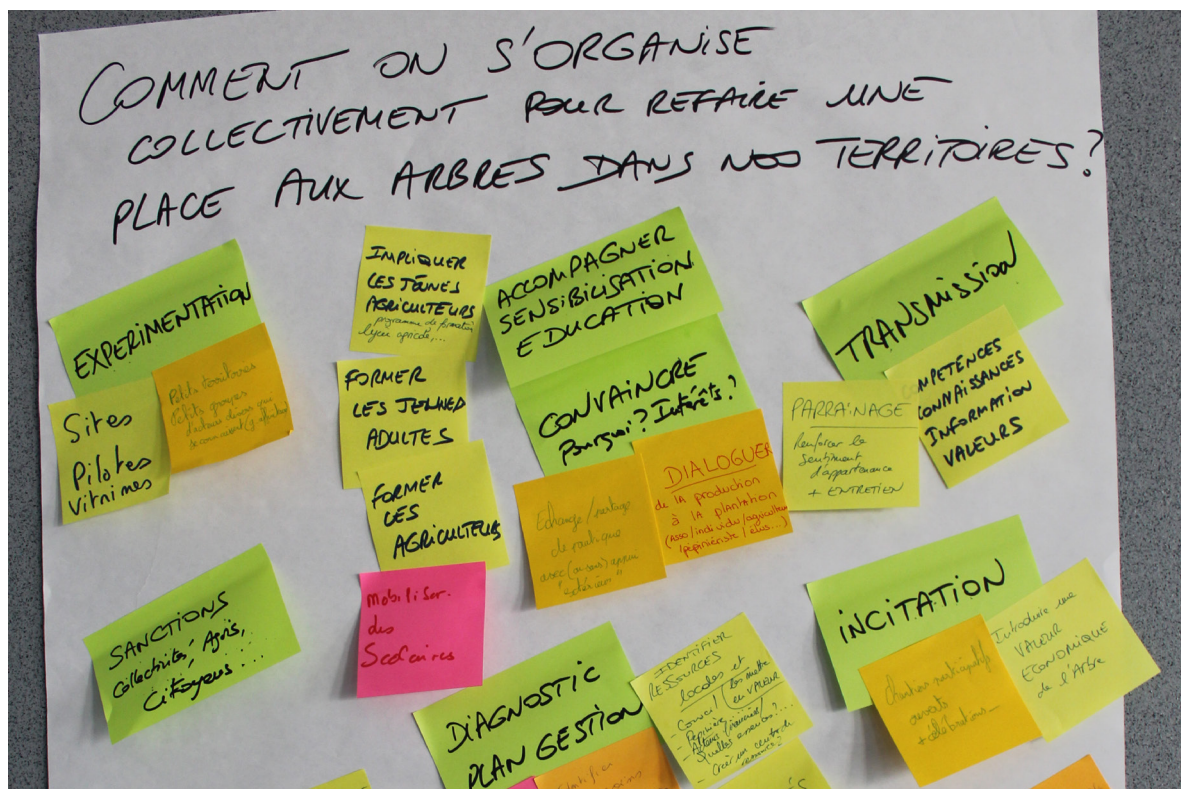 COMMENT ON S'ORGANISE
COLLECTIVEMENT POUR REFAIRE UNE
PLACE AUX ARBRES DANS NOS TERRITOIRES?
EXPERIMENTATION
Sites
Pilotes
vitrines
Petits territoires
Petits groupes
d'acteurs divers qui
se connaissent
IMPLIQUER
LES JEUNES
AGRICULTEURS
programme de formation
lycée agricole,...
FORMER
LES JEUNES
ADULTES
FORMER
LES
AGRICULTEURS
Mobiliser
des
Scolaires
ACCOMPAGNER
SENSIBILISATION
EDUCATION
CONVAINCRE
Pourquoi? Intérêts?
Echange/partage
de pratique
avec (ou sans)
"extérieur"
DIALOGUER
de la production
à la plantation
(Asso/individu/agriculteur
/pépiniériste/élus...)
TRANSMISSION
PARRAINAGE
Renforcer le
sentiment
d'appartenance
+ ENTRETIEN
COMPÉTENCES
CONNAISSANCES
INFORMATION
VALEURS
SANCTIONS
Collectivités, Agris,
Citoyens...
DIAGNOSTIC
PLAN GESTION
IDENTIFIER
RESSOURCES
locales et
les mettre
en VALEUR
Conseil
- Pépinière
- Créer un centre de
INCITATION
Chantiers
+ célébrations...
Introduire une
VALEUR
ECONOMIQUE
de l'Arbre